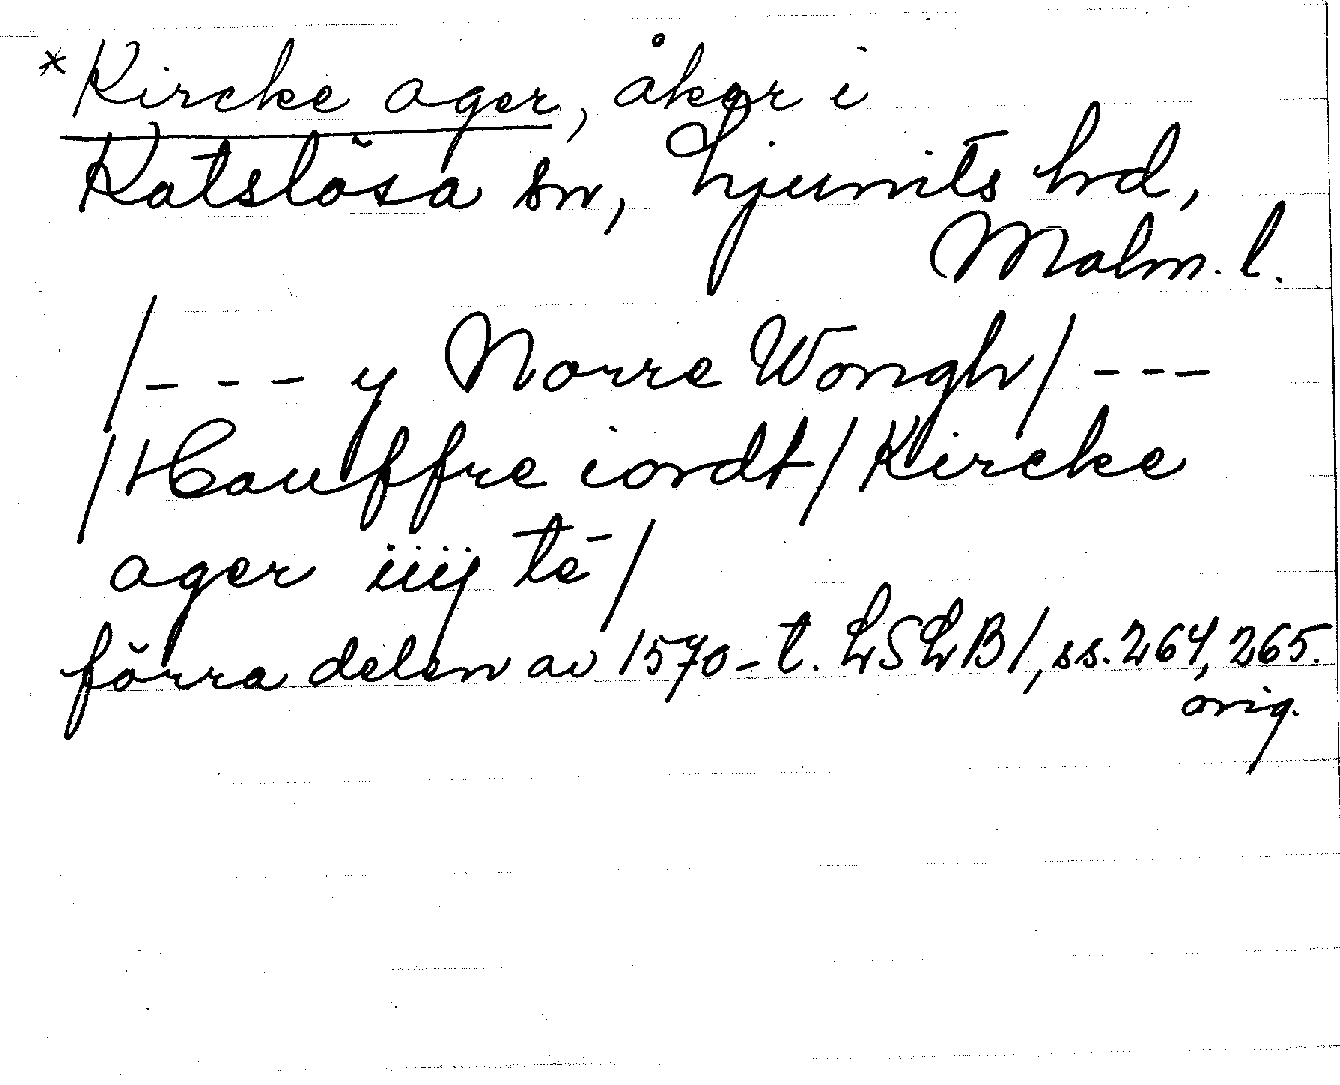 * Kircke ager, åker i
Katslösa sn, Ljunits hrd,
Malm. l.
/--- y Norre Wongh/ ---
/Hauffre iordt/ Kircke
ager iiij te/
förra delen av 1570-t. LSLB/, ss. 264, 265.
orig.